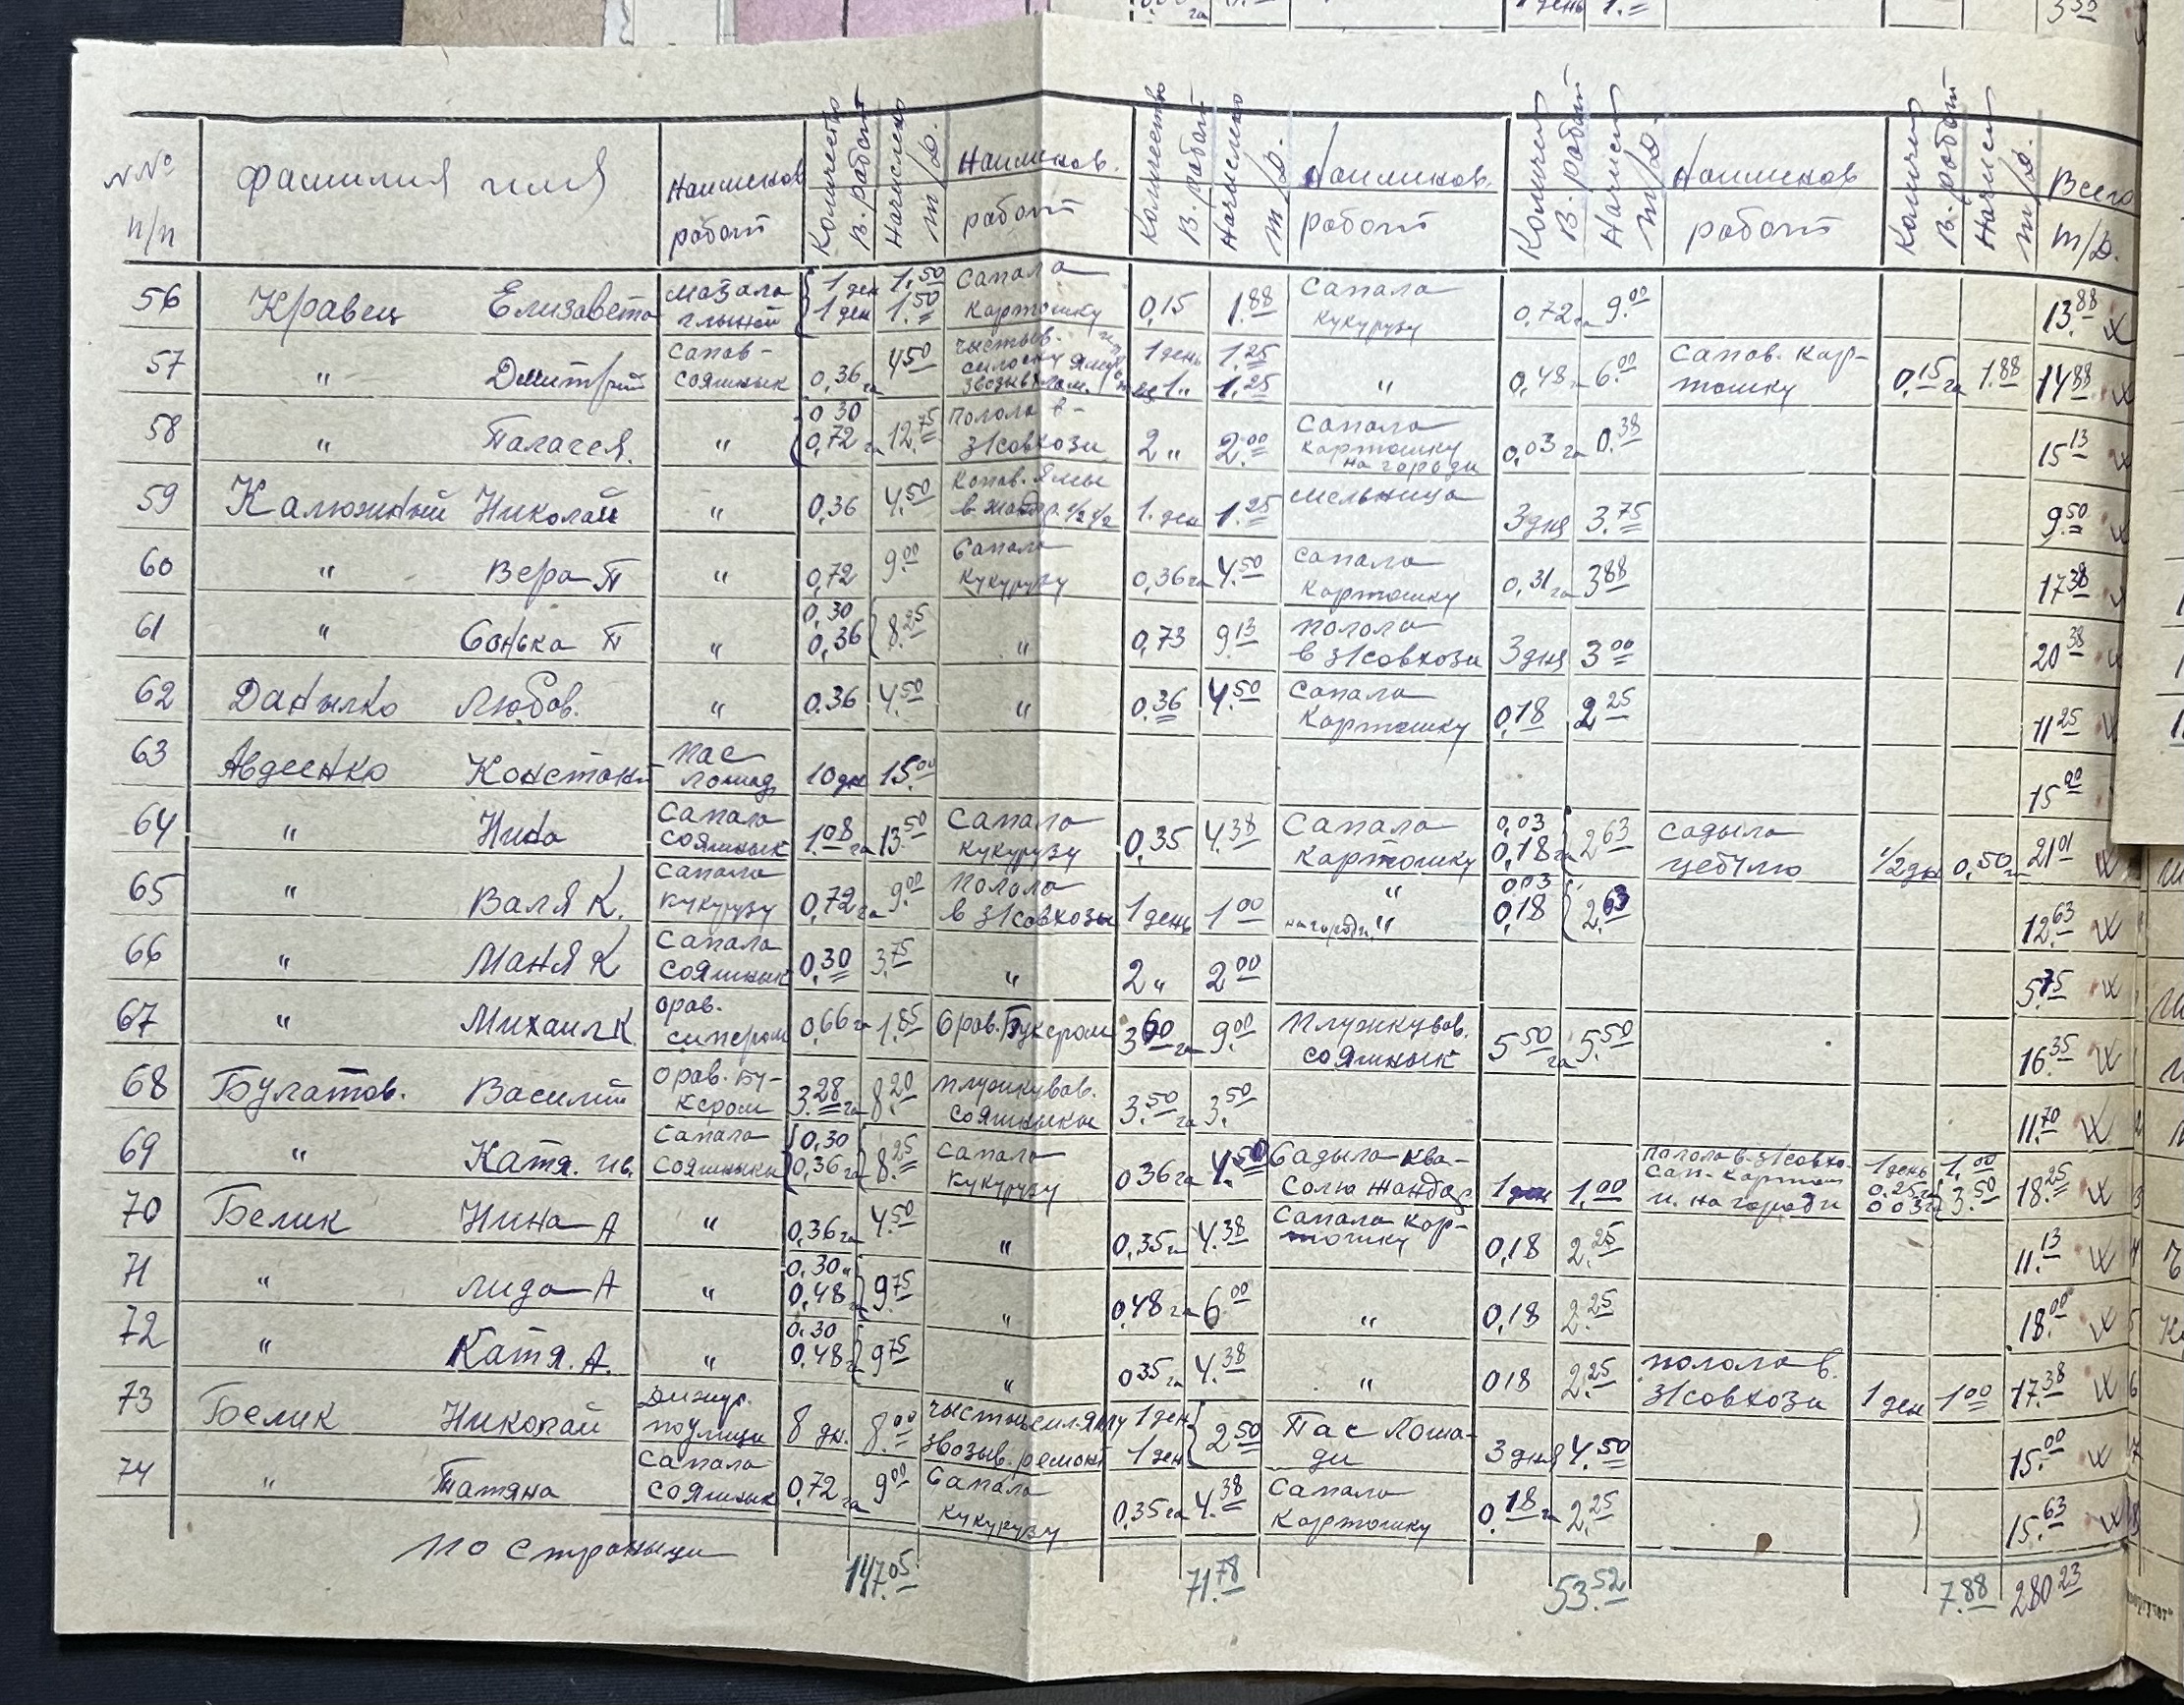 №№ п/п фамилия имя Наименов работ Количество в. работ Начислено т/д. Наименов. работ Количество в. работ Начислено т/д. Наименов. работ Количест в. работ Начислен т/д. Наименов работ Количест в. работ Начислен т/д. Всего т/д.
56 Кравец Елизавета мазала глыной 1 ден 1 ден 1,50 1.50 Сапала картошку 0,15 1.88 Сапала кукурузу 0,72 га 9.00 13.88
57 " Дмитрий сапав- сояшнык 0,36 га 4 50 чыстыв. силосну яму 1 день 1.25 1 " 1.25 " 0,48 га 6.00 Сапав. кар- тошку 0,15 га 1.88 14 88
58 " Палагея. " 0 30 0,72 га 12.75 полола в- з/совхози 2 " 2.00 Сапала картошку на городи 0,03 га 0.38 15 13
59 Калюжный Николай " 0,36 4.50 Копав. ямы в 1. ден 1.25 мельница 3 дня 3.75 9 50
60 " Вера П " 0,72 9.00 Сапала кукурузу 0,36 га 4.50 Сапала картошку 0,31 га 3 88 17 38
61 " Сонька П " 0,30 0,36 8.25 " 0,73 9 13 полола в з/совхози 3 дня 3 00 20 38
62 Данылко Любов. " 0.36 4.50 " 0.36 4.50 Сапала картошку 0,18 2 25 11 25
63 Авдеенко Констант пас лошад 10 дн 15.00 15 00
64 " Нина Сапала сояшнык 1.08 га 13 50 Сапала кукурузу 0,35 4.38 Сапала картошку 0,03 0,18 га 2 63 садыла цебулю 1/2 дн 0,50 21 01
65 " Валя К. Сапала кукурузу 0,72 га 9.00 полола в з/совхозы 1 день 1 00 " на городи " 0,03 0,18 2.63 12 63
66 " Маня К Сапала сояшнык 0,30 3.75 " 2 " 2 00 5.75
67 " Михаил К орав. 0,66 га 1.85 Орав. Буксром 3 60 га 9.00 плужкував. сояшнык 5 50 га 5.50 16.35
68 Булатов. Василий орав. бу- ксром 3.28 га 8.20 плужкував. сояшныкы 3.50 га 3.50 11.70
69 " Катя. ив. Сапала сояшныкы 0,30 0,36 га 8.25 Сапала кукурузу 0 36 га 4.50 Садыла ква- солю 1 ден 1.00 полола в з/совхо. сап. картош и. на городи 1 день 0.25 га 0 03 га 1.00 3.50 18.25
70 Белик Нина А " 0,36 га 4.50 " 0,35 га 4.38 Сапала кар- тошку 0,18 2.25 11.13
71 " Лида А " 0,30 " 0,48 9 75 " 0,48 га 6 00 " 0,18 2.25 18.00
72 " Катя. А. " 0.30 0,48 9 75 " 0 35 га 4.38 " 0 18 2.25 полола в. з/совхози 1 ден 1 00 17.38
73 Белик Николай Дижур. по улици 8 дн. 8.00 чыстыв сил. яму звозыв. ремонт 1 ден 1 ден 2 50 Пас Лоша- ди 3 дня 4.50 15.00
74 " Татяна Сапала сояшнык 0,72 га 9 00 Сапала кукурузу 0,35 га 4.38 Сапала картошку 0,18 га 2.25 15.63
по страныци 147.05 71.78 53.52 7.88 280 23